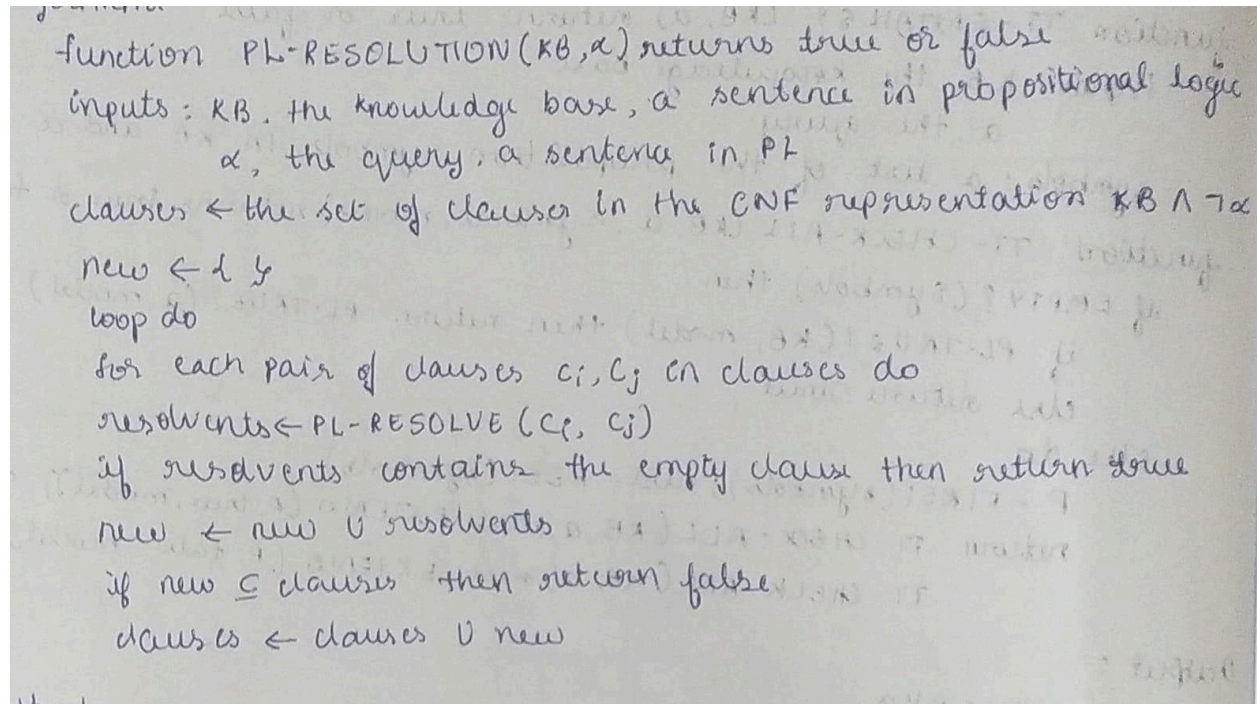 function PL-RESOLUTION (KB, α) returns true or false
inputs : KB, the knowledge base, a sentence in propositional logic
α, the query, a sentence in PL
clauses ← the set of clauses in the CNF representation KB ∧ ¬α
new ← { }
loop do
for each pair of clauses Ci, Cj in clauses do
resolvents ← PL-RESOLVE (Ci, Cj)
if resolvents contains the empty clause then return true
new ← new ∪ resolvents
if new ⊆ clauses then return false
clauses ← clauses ∪ new